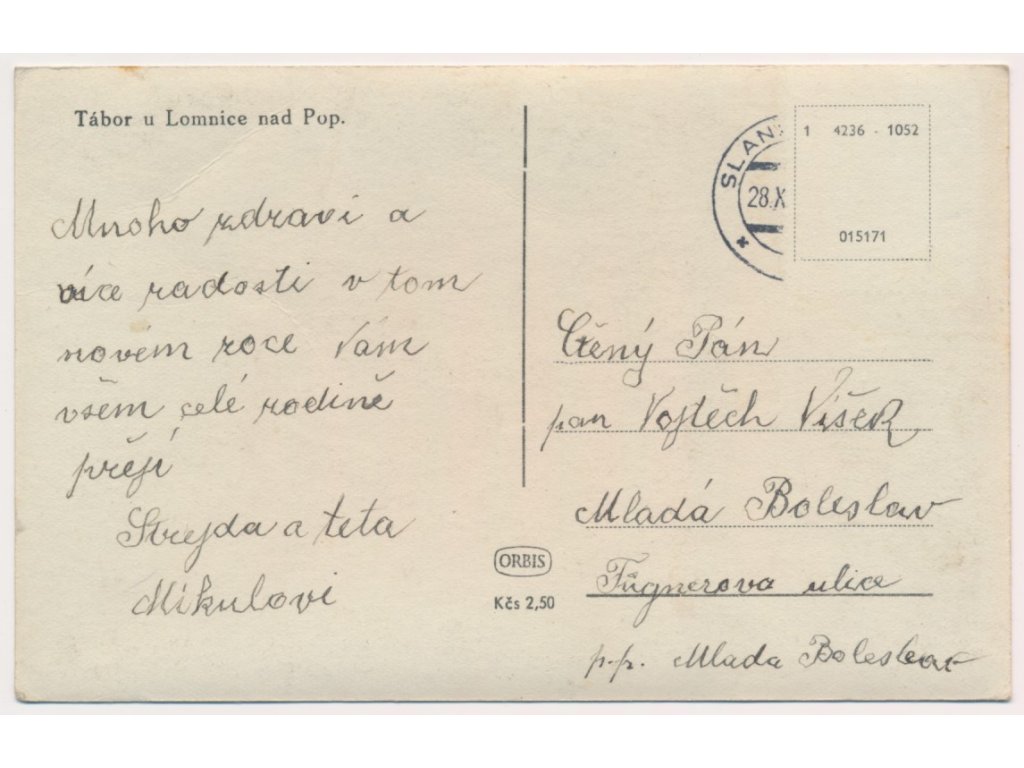 Tábor u Lomnice nad Pop.
Mnoho zdraví a
více radosti v tom
novém roce Vám
všem celé rodině
přejí
Strejda a teta
Mikulovi
SLAN
28.X
1 4236 - 1052
015171
Ctěný Pán
pan Vojtěch Víšek
Mladá Boleslav
Fügnerova ulice
p.p. Mlada Boleslav
ORBIS
Kčs 2,50